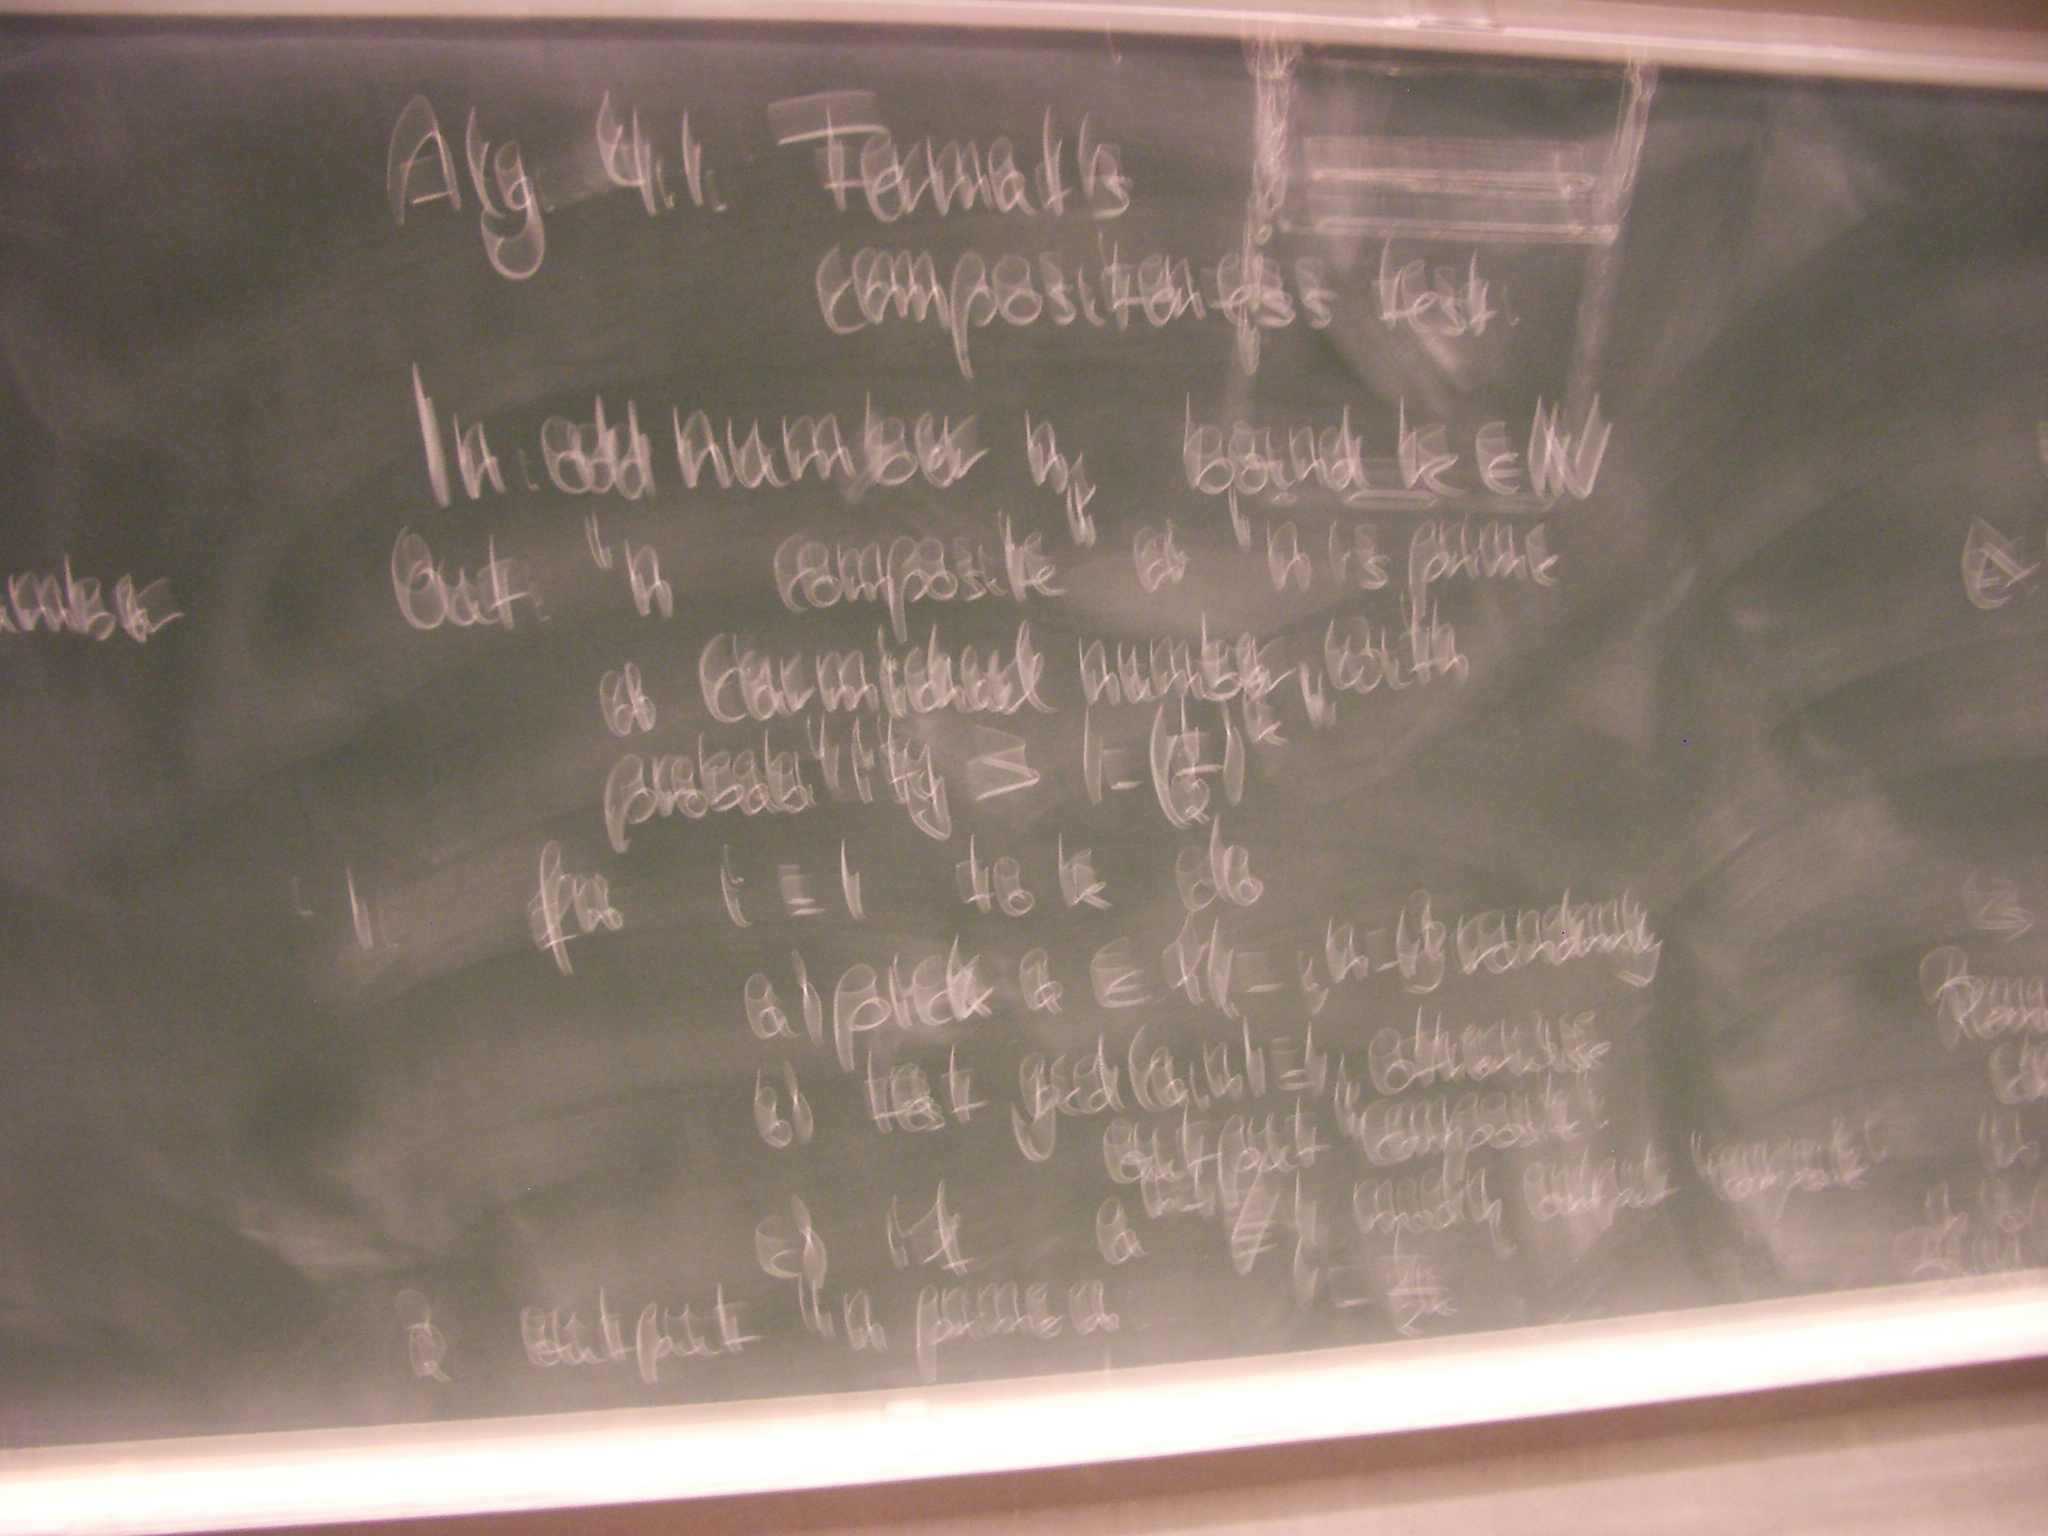 umber
Alg 4.1. Fermat's
compositeness test.
In: odd number n, bound k ∈ ℕ
Out: "n composite" or "n is prime
or Carmichael number", with
probability ≥ 1-(1/2)^k
1. for i=1 to k do
a) pick a ∈ {1-,n-1} randomly
b) test gcd(a,n)=1, otherwise
output "composite"
c) if a^n-1 ≢ 1 mod n, output "composite"
2 output "n prime or
1 - 1/2^k